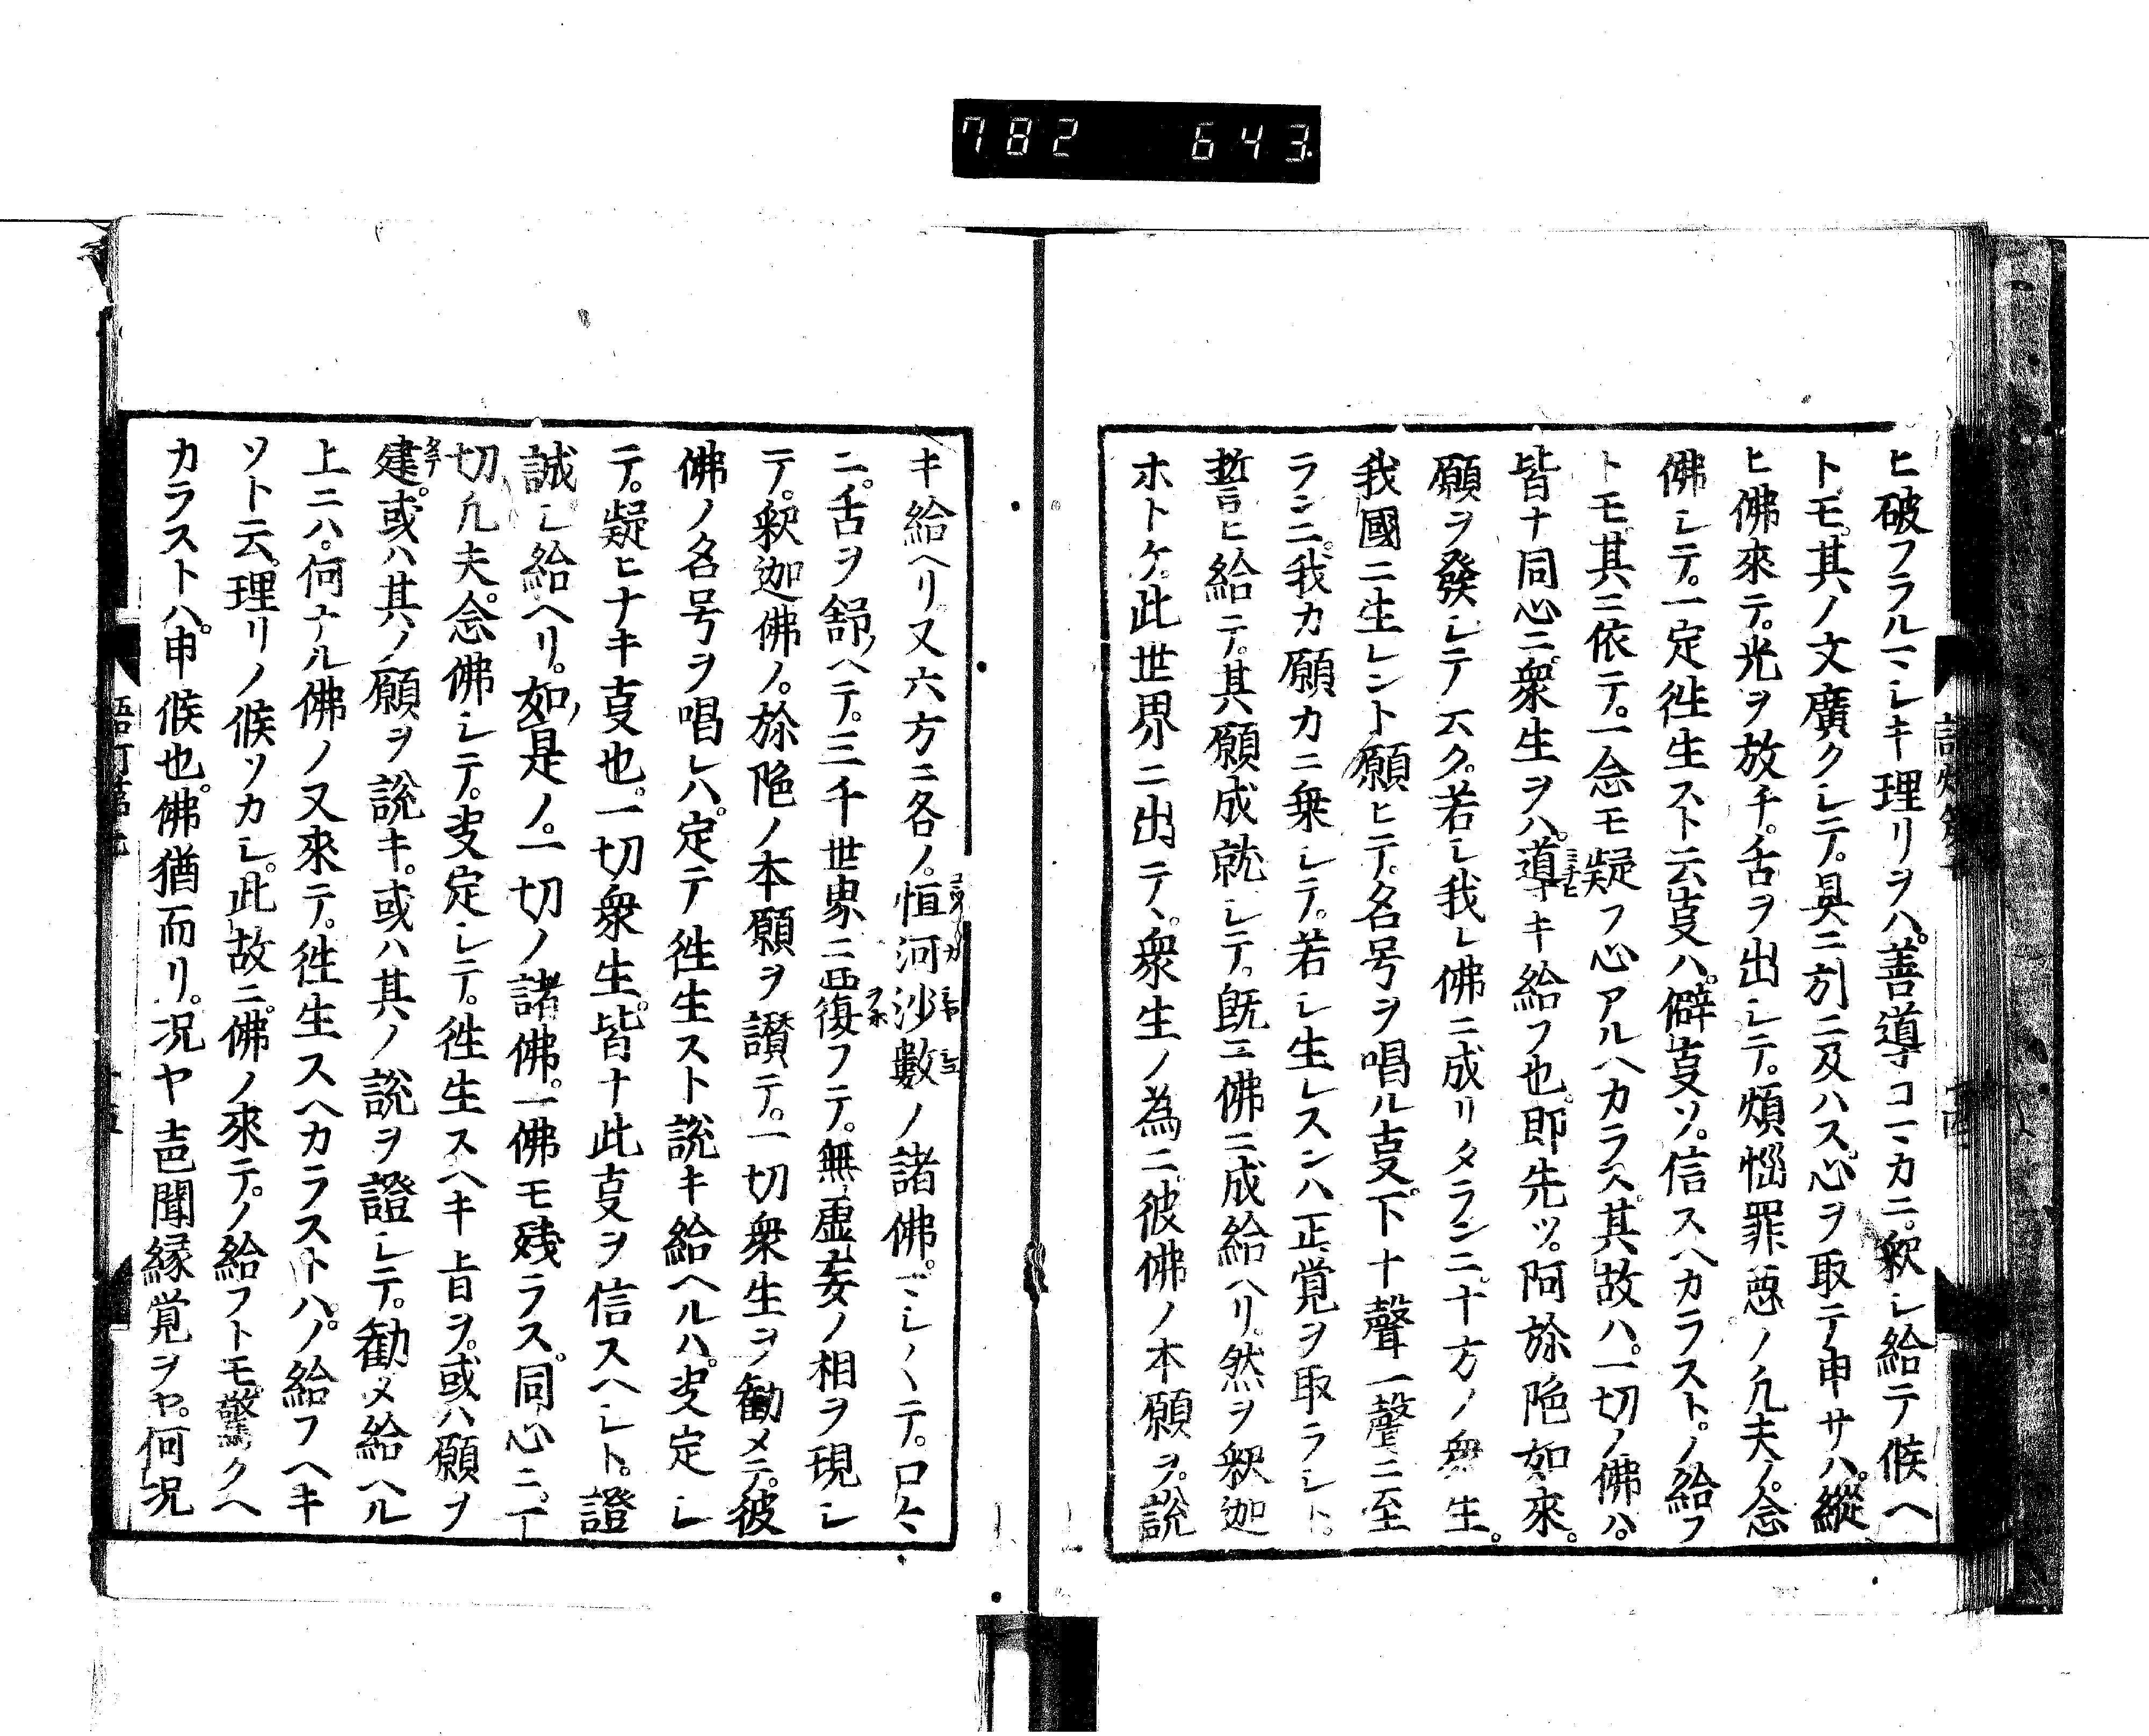 782 643
ヒ破フラルマシキ理リヲハ。善導コマカニ。釈シ給テ候ヘ
トモ。其ノ文廣クシテ。具ニ引ニ及ハス。心ヲ取テ申サハ。縦
ヒ佛來テ。光ヲ放チ。舌ヲ出シテ。煩惱罪悪ノ凢夫ノ。念
佛シテ。一定徃生スト云叓ハ。僻叓ソ。信スヘカラスト。ノ給フ
トモ。其ニ依テ。一念モ疑フ心アルヘカラス。其故ハ。一切ノ佛ハ。
皆ナ同心ニ。衆生ヲハ。導キ給フ也。即先ツ。阿旀陁如來。
願ヲ發シテ云ク。若シ我レ佛ニ成リタランニ。十方ノ衆生。
我國ニ生レント願ヒテ。名号ヲ唱ル叓。下十聲一聲ニ至
ランニ。我カ願カニ乗シテ。若シ生レスンハ正覚ヲ取ラシト。
誓ヒ給テ。其願成就シテ。既ニ佛ニ成給ヘリ。然ヲ釈迦
ホトケ。此世界ニ出テ。衆生ノ為ニ。彼佛ノ本願ヲ。説
キ給ヘリ又六方ニ各ノ。恒河沙數ノ諸佛。マシ〱テ。口々
ニ。舌ヲ舒ヘテ。三千世界ニ覆フテ。無虚妄ノ相ヲ現シ
テ。釈迦佛ノ。旀陁ノ本願ヲ讃テ。一切衆生ヲ勧メテ。彼
佛ノ名号ヲ唱レハ。定テ徃生スト説キ給ヘルハ。㕝定シ
テ。疑ヒナキ叓也。一切衆生。皆ナ此叓ヲ信スヘシト。證
誠シ給ヘリ。如是ノ。一切ノ諸佛。一佛モ残ラス。同心ニ。一
切凢夫。念佛シテ。决定シテ。徃生スヘキ旨ヲ。或ハ願ヲ
建。或ハ其ノ願ヲ説キ。或ハ其ノ説ヲ證シテ。勧メ給ヘル
上ニハ。何ナル佛ノ又來テ。徃生スヘカラストハ。ノ給フヘキ
ソト云。理リノ候ソカシ。此故ニ。佛ノ來テ。ノ給フトモ。驚クヘ
カラストハ。申候也。佛猶而リ。况ヤ声聞縁覚ヲヤ。何况